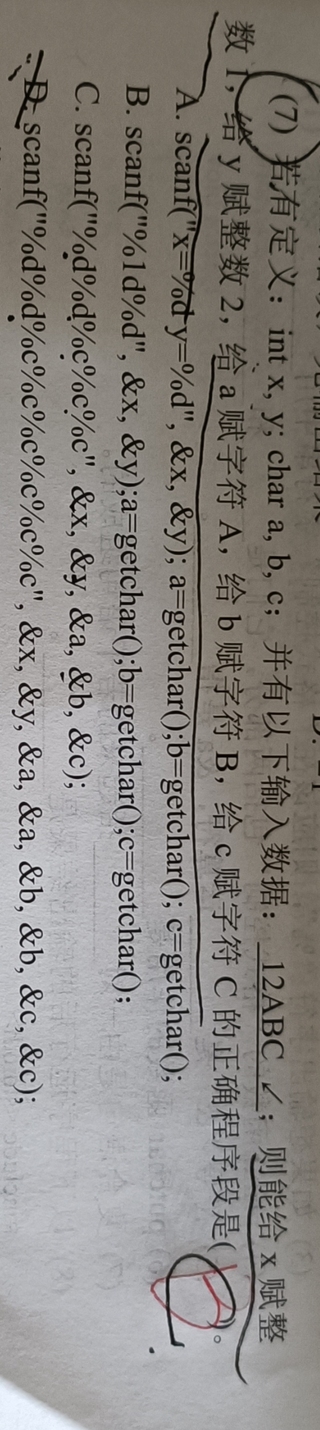 (7) 若有定义：int x, y; char a, b, c; 并有以下输入数据：12ABC↙; 则能给 x 赋整
数 1, 给 y 赋整数 2, 给 a 赋字符 A, 给 b 赋字符 B, 给 c 赋字符 C 的正确程序段是( B )。
A. scanf("x=%d y=%d", &x, &y); a=getchar();b=getchar(); c=getchar();
B. scanf("%1d%d", &x, &y);a=getchar();b=getchar();c=getchar();
C. scanf("%d%d%c%c%c", &x, &y, &a, &b, &c);
D. scanf("%d%d%c%c%c%c%c%c", &x, &y, &a, &a, &b, &b, &c, &c);